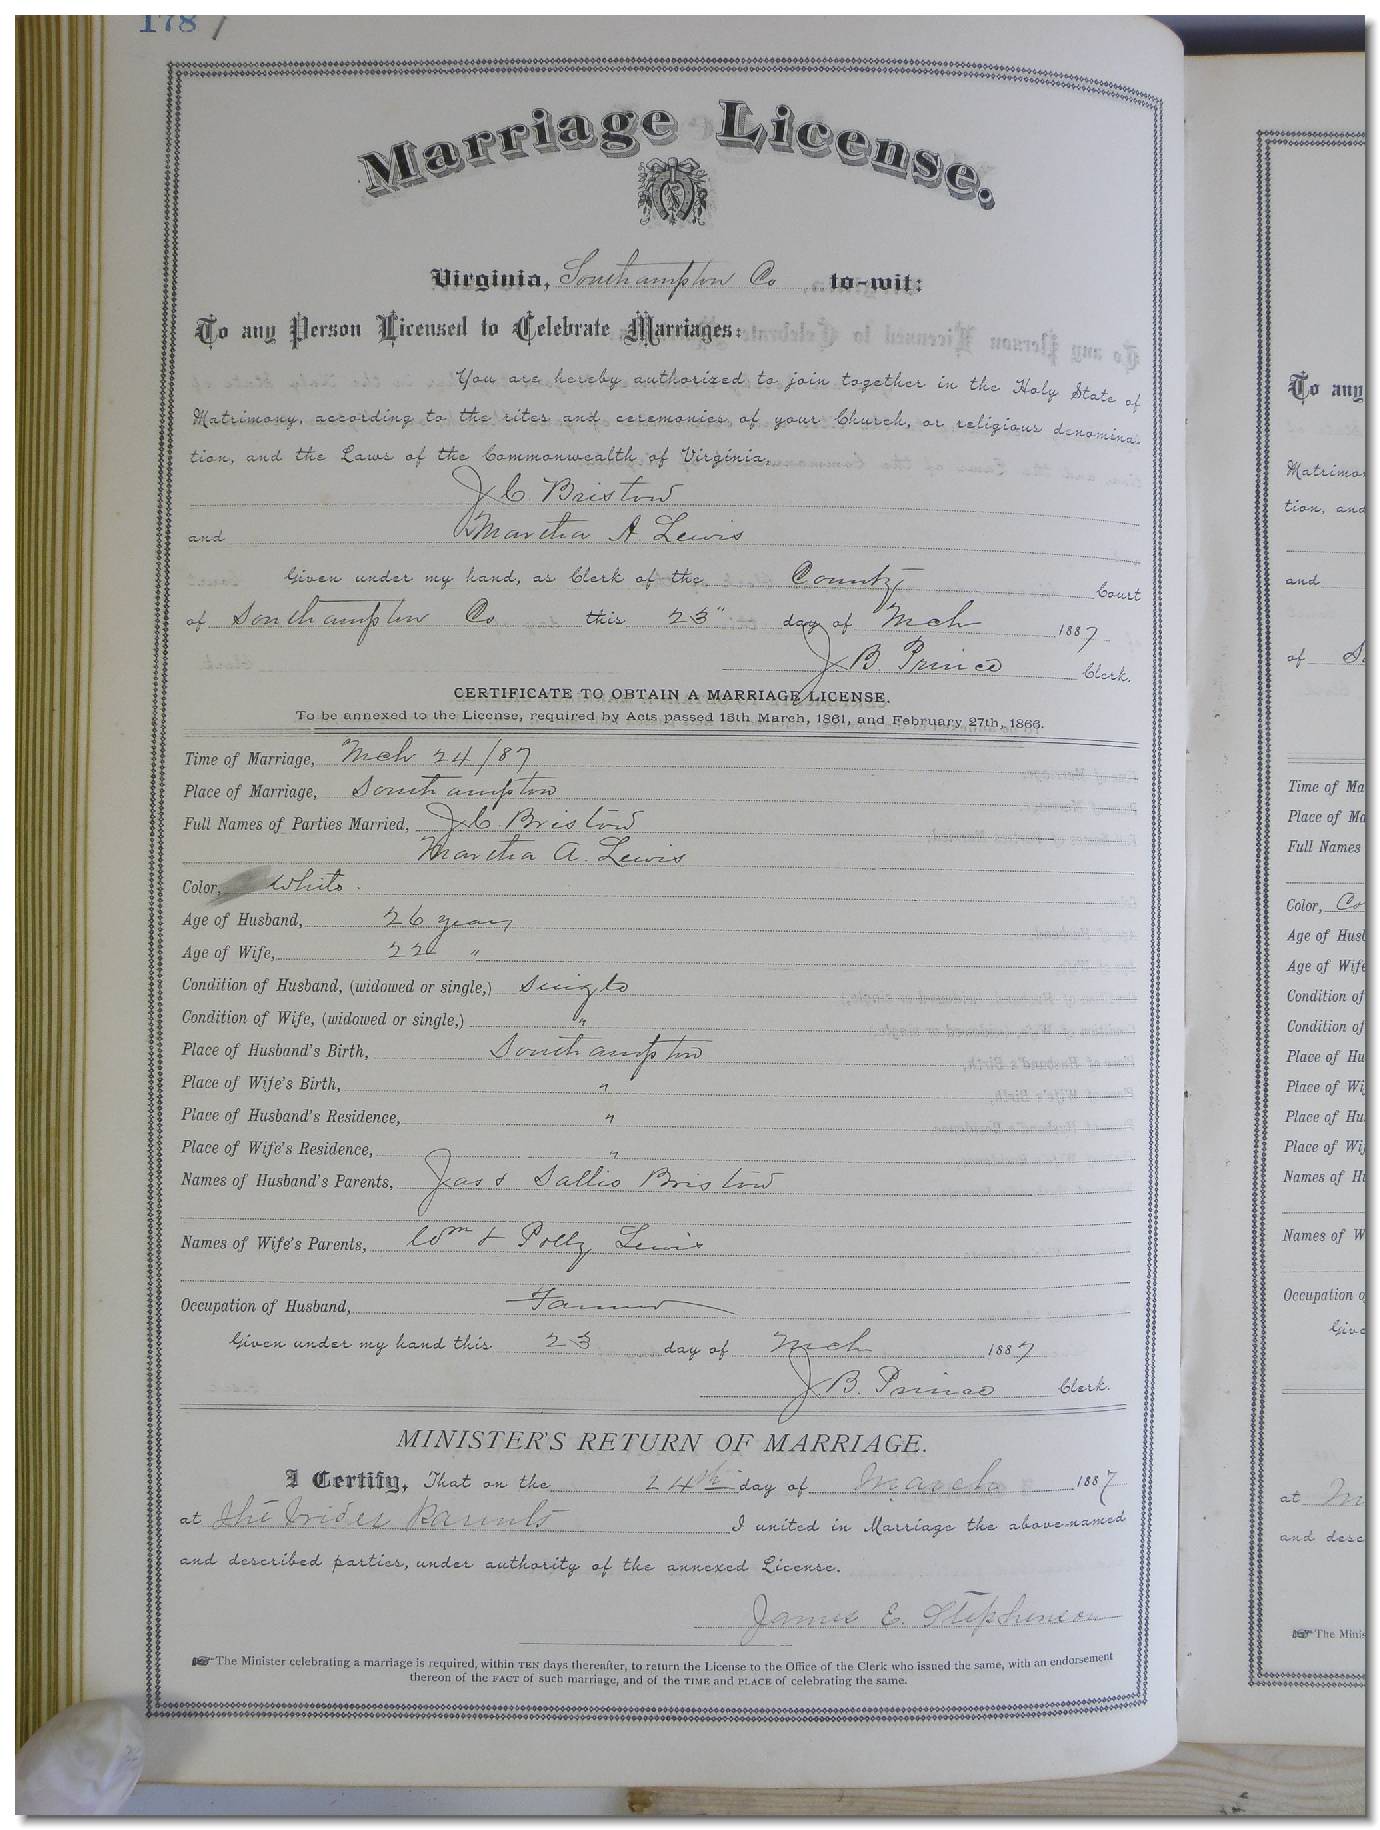 178
Marriage License.
Virginia, Southampton Co to-wit:
To any Person Licensed to Celebrate Marriages:
You are hereby authorized to join together in the Holy State of
Matrimony, according to the rites and ceremonies of your Church, or religious denomina-
tion, and the Laws of the Commonwealth of Virginia,
J C Bristow
and Martha A Lewis
Given under my hand, as Clerk of the County Court
of Southampton Co this 23" day of Mch 1887
J B. Prince Clerk.
CERTIFICATE TO OBTAIN A MARRIAGE LICENSE.
To be annexed to the License, required by Acts passed 15th March, 1861, and February 27th, 1866.
Time of Marriage, Mch 24/87
Place of Marriage, Southampton
Full Names of Parties Married, J C Bristow
Martha A. Lewis
Color, White.
Age of Husband, 26 years
Age of Wife, 22 "
Condition of Husband, (widowed or single,) Single
Condition of Wife, (widowed or single,) "
Place of Husband's Birth, Southampton
Place of Wife's Birth, "
Place of Husband's Residence, "
Place of Wife's Residence, "
Names of Husband's Parents, Jas & Sallie Bristow
Names of Wife's Parents, Wm & Polly Lewis
Occupation of Husband, Farmer
Given under my hand this 23 day of Mch 1887
J B. Prince Clerk.
MINISTER'S RETURN OF MARRIAGE.
I Certify, That on the 24th day of March 1887
at the Brides Parents I united in Marriage the above-named
and described parties, under authority of the annexed License.
James E. Stephenson
☞ The Minister celebrating a marriage is required, within TEN days thereafter, to return the License to the Office of the Clerk who issued the same, with an endorsement
thereon of the FACT of such marriage, and of the TIME and PLACE of celebrating the same.
To any
Matrimo
tion, and
and
of
Time of Ma
Place of Ma
Full Names
Color, Co
Age of Husb
Age of Wife
Condition of
Condition of
Place of Hu
Place of Wi
Place of Hu
Place of Wi
Names of Hu
Names of W
Occupation o
Give
at
and desc
☞ The Minis